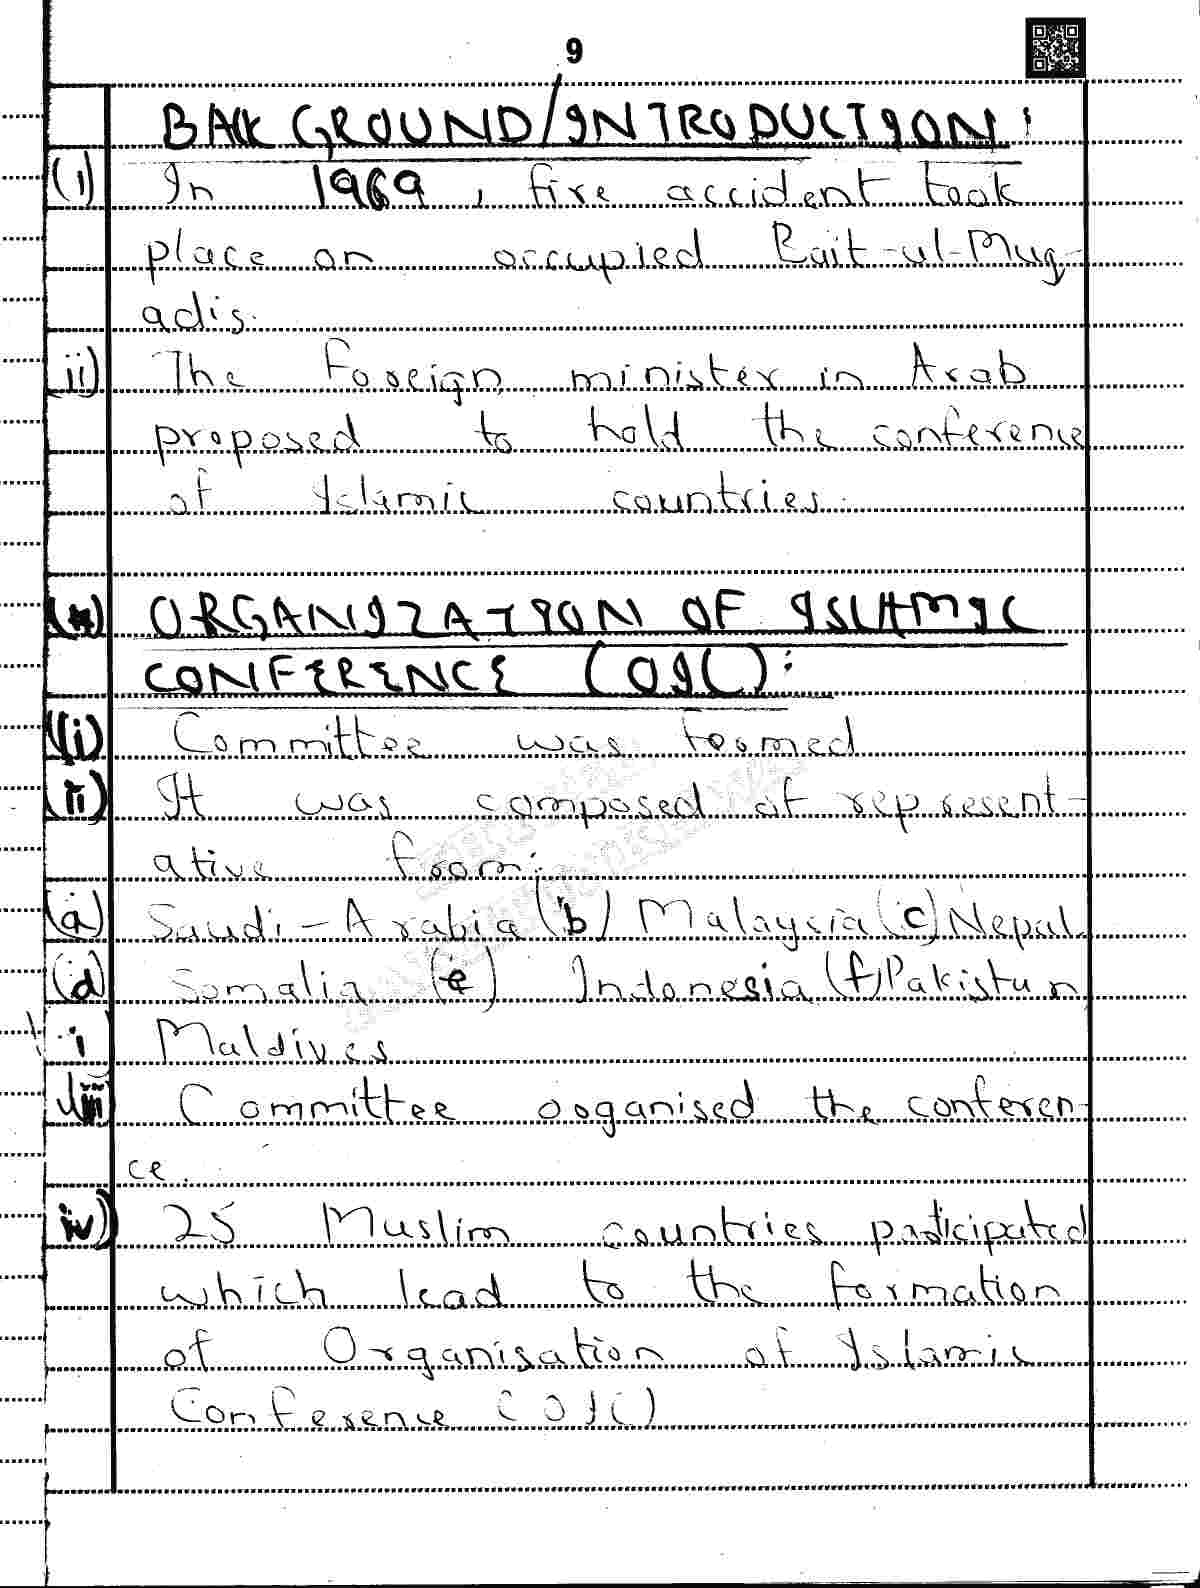 9
BACKGROUND/INTRODUCTION:
(i) In 1969, fire accident took
place on occupied Bait-ul-Muq-
adis.
ii) The Foreign minister in Arab
proposed to hold the conference
of Islamic countries.
(*) ORGANIZATION OF ISLAMIC
CONFERENCE (OIC):
(i) Committee was formed
(ii) It was composed of represent-
ative from:
(a) Saudi-Arabia (b) Malaysia (c) Nepal
(d) Somalia (e) Indonesia (f) Pakistan
Maldives
iii) Committee organised the conferen-
ce.
iv) 25 Muslim countries participated
which lead to the formation
of Organisation of Islamic
Conference (OIC)